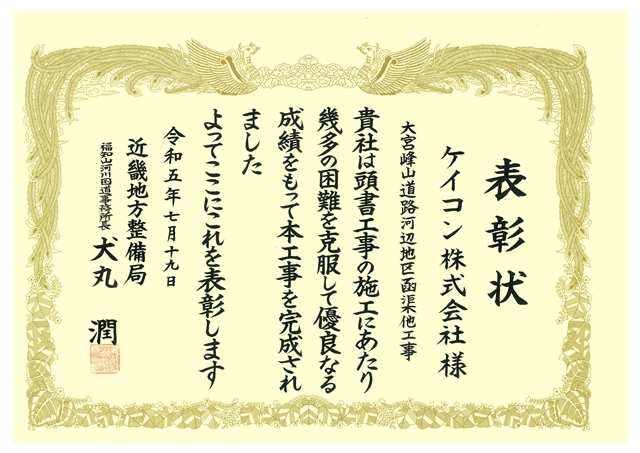 表彰状
ケイコン株式会社様
大宮峰山道路河辺地区函渠他工事
貴社は頭書工事の施工にあたり
幾多の困難を克服して優良なる
成績をもって本工事を完成され
ました
よってここにこれを表彰します
令和五年七月十九日
近畿地方整備局
福知山河川国道事務所長
犬丸 潤